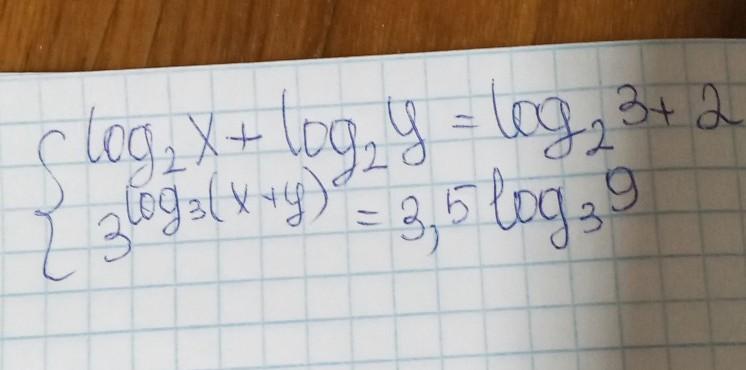 log₂x + log₂y = log₂3 + 2
3^log₃(x+y) = 3,5 log₃9